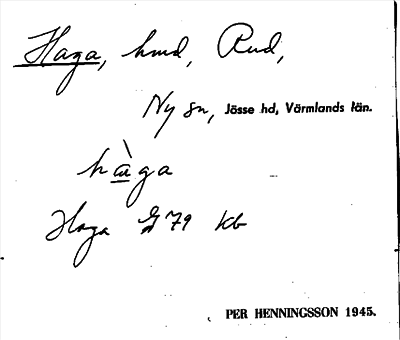 Haga, hmd, Rud,
Ny sn, Jösse hd, Värmlands län.
hàga
Haga G79 kb
PER HENNINGSSON 1945.